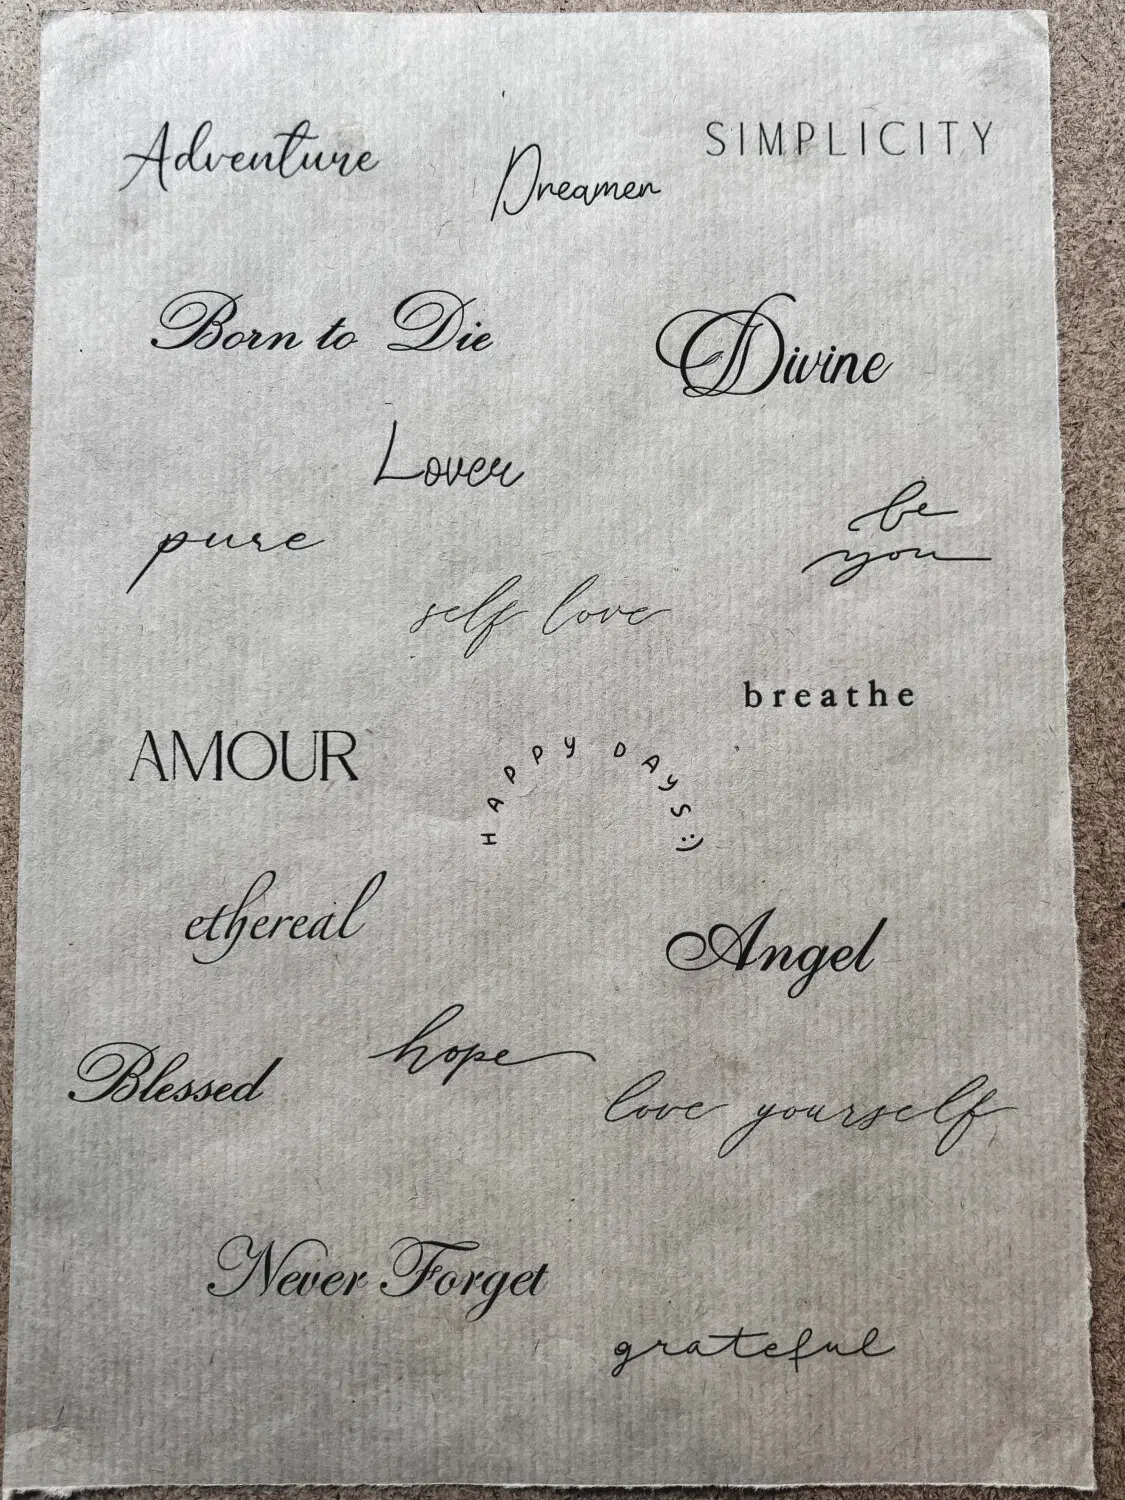 Adventure
Dreamer
SIMPLICITY
Born to Die
Divine
Lover
pure
be
you
self love
breathe
AMOUR
HAPPY DAYS:)
ethereal
Angel
Blessed
hope
love yourself
Never Forget
grateful